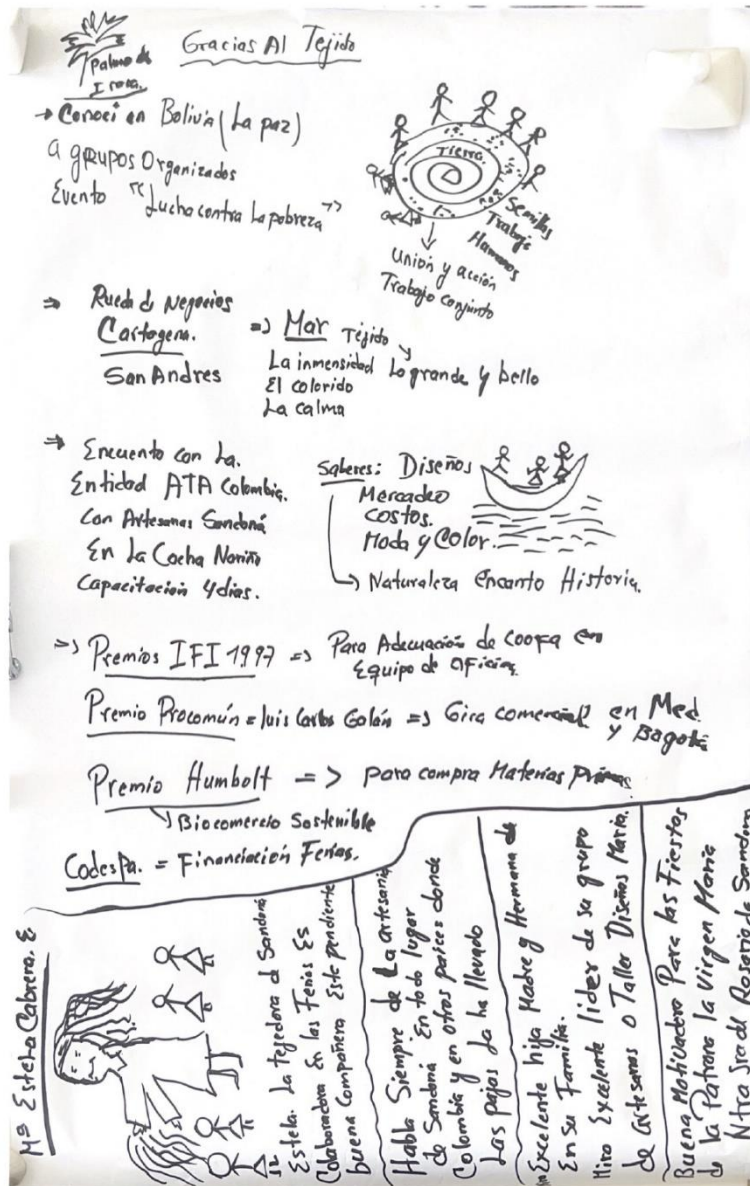 Gracias Al Tejido
Palma de
Iraca.
→ Conocí en Bolivia (La paz)
a grupos Organizados
Evento "Lucha contra La pobreza"
Tierra.
Semillas
Trabajo
Humanos
Unión y acción
Trabajo conjunto
⇒ Rueda de Negocios
Cartagena.
San Andres
⇒ Mar Tejido
La inmensidad Lo grande y bello
El colorido
La calma
⇒ Encuento con La.
Entidad ATA Colombia.
Con Artesanas Sandoná
En La Cocha Nariño
Capacitación 4 dias.
Saberes: Diseños
Mercadeo
Costos.
Moda y Color.
→ Naturaleza Encanto Historia.
⇒ Premios IFI 1997 ⇒ Para Adecuación de Coofa en
Equipo de oficina
Premio Procomún = Luis Carlos Galán ⇒ Gira comercial en Med
y Bogotá
Premio Humbolt => para compra Materias Primas
Biocomercio Sostenible
Codespa. = Financiación Ferias.
Mª Estela Cabrera. E
Estela. La tejedora d Sandoná
Colaboradora En las Ferias Es
buena Compañera Este pendiente
Habla Siempre de La artesanía
de Sandoná En todo lugar
Colombia y en otros paices donde
Las pajas La ha llevado
Excelente hija Madre y Hermana de
En su Familia.
Excelente lider de su grupo
de artesanas o Taller Diseños María.
Buena Motivadora Para las Fiestas
de la Patrona la Virgen María
Ntra Sra de Rosario de Sandoná